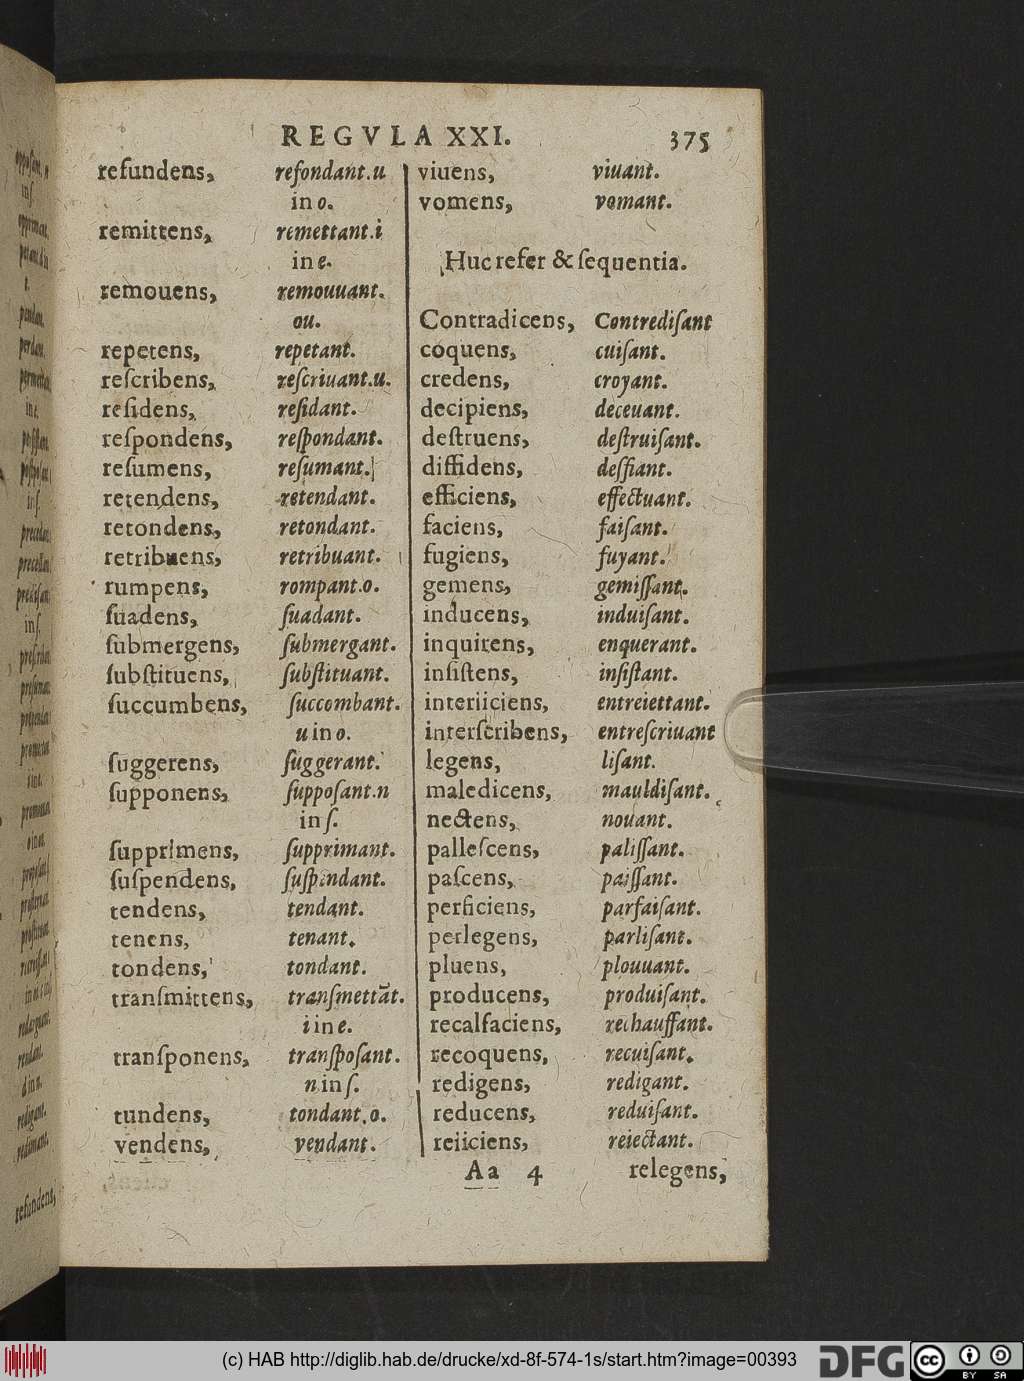 REGVLA XXI. 375
refundens, refondant.u
in o.
remittens, remettant.i
in e.
remouens, remouuant.
ou.
repetens, repetant.
reſcribens, reſcriuant.u.
reſidens, reſidant.
reſpondens, reſpondant.
reſumens, reſumant.
retendens, retendant.
retondens, retondant.
retribuens, retribuant.
rumpens, rompant.o.
ſuadens, ſuadant.
ſubmergens, ſubmergant.
ſubſtituens, ſubſtituant.
ſuccumbens, ſuccombant.
u in o.
ſuggerens, ſuggerant.
ſupponens, ſuppoſant.n
in ſ.
ſupprimens, ſupprimant.
ſuſpendens, ſuſpendant.
tendens, tendant.
tenens, tenant.
tondens, tondant.
tranſmittens, tranſmettãt.
i in e.
tranſponens, tranſpoſant.
n in ſ.
tundens, tondant.o.
vendens, vendant.
viuens, viuant.
vomens, vomant.
Huc refer & ſequentia.
Contradicens, Contrediſant
coquens, cuiſant.
credens, croyant.
decipiens, deceuant.
deſtruens, deſtruiſant.
diffidens, deffiant.
efficiens, effectuant.
faciens, faiſant.
fugiens, fuyant.
gemens, gemiſſant.
inducens, induiſant.
inquirens, enquerant.
inſiſtens, inſiſtant.
interiiciens, entreiettant.
interſcribens, entreſcriuant
legens, liſant.
maledicens, mauldiſant.
nectens, nouant.
palleſcens, paliſſant.
paſcens, paiſſant.
perficiens, parfaiſant.
perlegens, parliſant.
pluens, plouuant.
producens, produiſant.
recalfaciens, rechauffant.
recoquens, recuiſant.
redigens, redigant.
reducens, reduiſant.
reiiciens, reiectant.
Aa 4 relegens,
(c) HAB http://diglib.hab.de/drucke/xd-8f-574-1s/start.htm?image=00393
DFG
cc BY SA